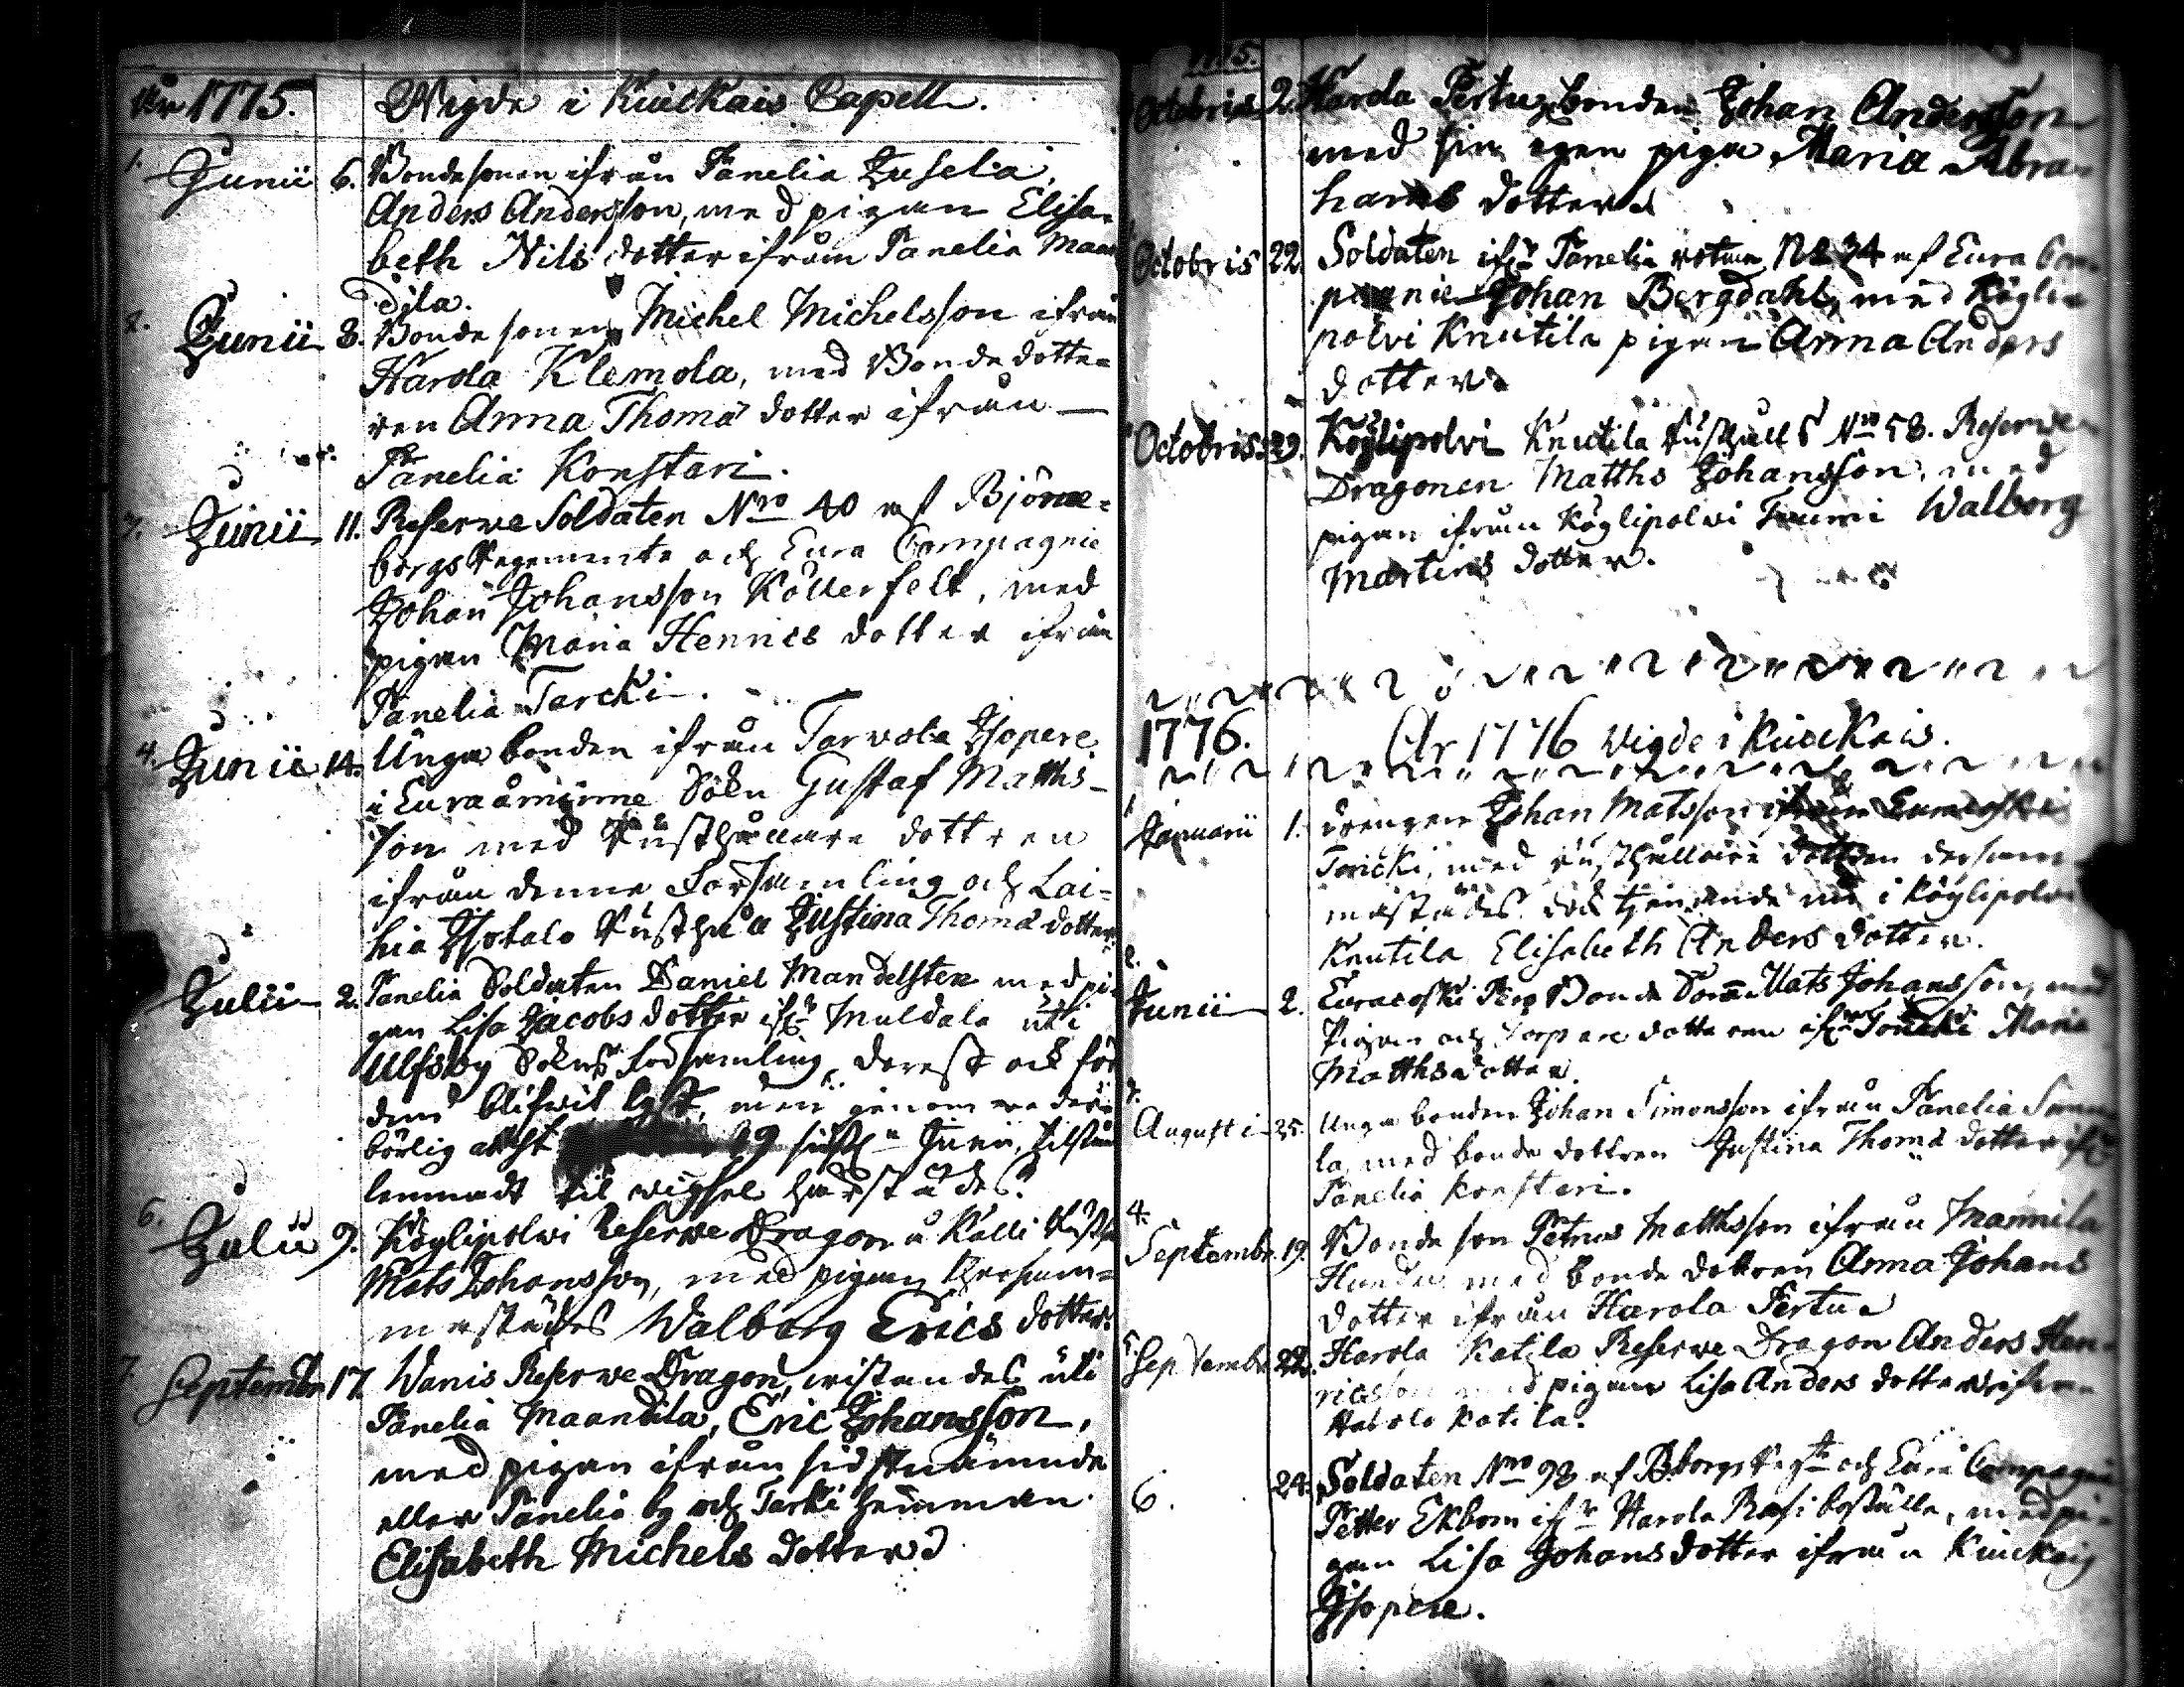 År 1775. Wigde i Kiuckais Capell.
1. Junii 6. Bondesonen ifrån Panelia Jusela,
Anders Andersson, med pigan Elisa-
beth Nils dotter ifrån Panelia Maan
dila.
2. Junii 8. Bonde sonen Michel Michelsson ifrån
Harola Klemola, med Bonde dotte-
ren Anna Thomæ dotter ifrån
Panelia Konstari.
3. Junii 11. Reserve Soldaten Nro 40 af Björne-
borgs Regemente och Eura Compagnie
Johan Johansson Källerfelt, med
pigan Maria Henrics dotter ifrån
Panelia Tarcki.
4. Junii 14. Unga bonden ifrån Tarvola Isopere
i Euraåminne Sokn Gustaf Matths-
son med Rusthållare dottren
ifrån denne Församling och Lai-
hia Isotalo Rusthåll Justina Thomæ dotter
Julii 2. Panelia Soldaten Daniel Mandelsten med pi-
gan Lisa Jacobs dotter ifrn Muldala uti
Ulfsby Sokns Församling, derest ock för
dem blifvit lyst, men genom
börlig attest 29 Junii, tilstånd
lemnadt til vigsel härstädes.
6. Julii 9. Köylipolvi Reserve Dragon å Kalli Rusth
Mats Johansson, med pigan dersam-
mastädes Walborg Erics dotter.
7. Septembr. 17. Wanis Reserve Dragon, vistandes uti
Panelia Maandila, Eric Johansson,
med pigan ifrån sidstnämnde
eller Panelia by och Tarki hemman
Elisabeth Michels dotter
1775.
Octobris 2. Harola Pertu bonden Johan Andersson
med sin egen piga Maria Abra-
hams dotter
Octobris 22. Soldaten ifrn Panelia rotan No 34 af Eura Com-
pagnie Johan Bergdahl, med Köylio
polvi Knutila pigan Anna Anders
dotter
Octobris 29. Köylipolvi Knutila Rusthålls Nro 58. Reserve
Dragonen Matths Johansson, med
pigan ifrån Köylipolvi Tuumi Walborg
Martins dotter.
1776. År 1776 vigde i Kiuckais.
1 Januarii 1. drengen Johan Matsson ifrån Euracoski
Toricki, med rusthållare dottren dersam-
mastädes, dock tjenande nu i Köylipolvi
Knutila Elisabeth Anders dotter.
2. Junii 2. Euracoski Bonde Son Mats Johansson, med
Pigan och Torpare dotteren ifrn Maria
Matthsdotter.
3. Augusti 25. Unga bonden Johan Simonsson ifrån Panelia
la, med bonde dottren Justina Thomæ dotter ifrn
Panelia Konstari.
4. Septembr. 19. Bonde son Petrus Matthsson ifrån Mannila
med bonde dottren Anna Johans
dotter ifrån Harola Pertu
5. Septembr. 22. Harola Katila Reserve Dragon Anders Hen-
ricsson med pigan Lisa Anders dotter ifrån
Harola Katila.
6. 24. Soldaten Nro 98 af Bborgs Regte och Eura Compagnie
Petter Ekbom ifrn Harola Rasi boställe, med pi-
gan Lisa Johans dotter ifrån Kiuckais
Isopere.